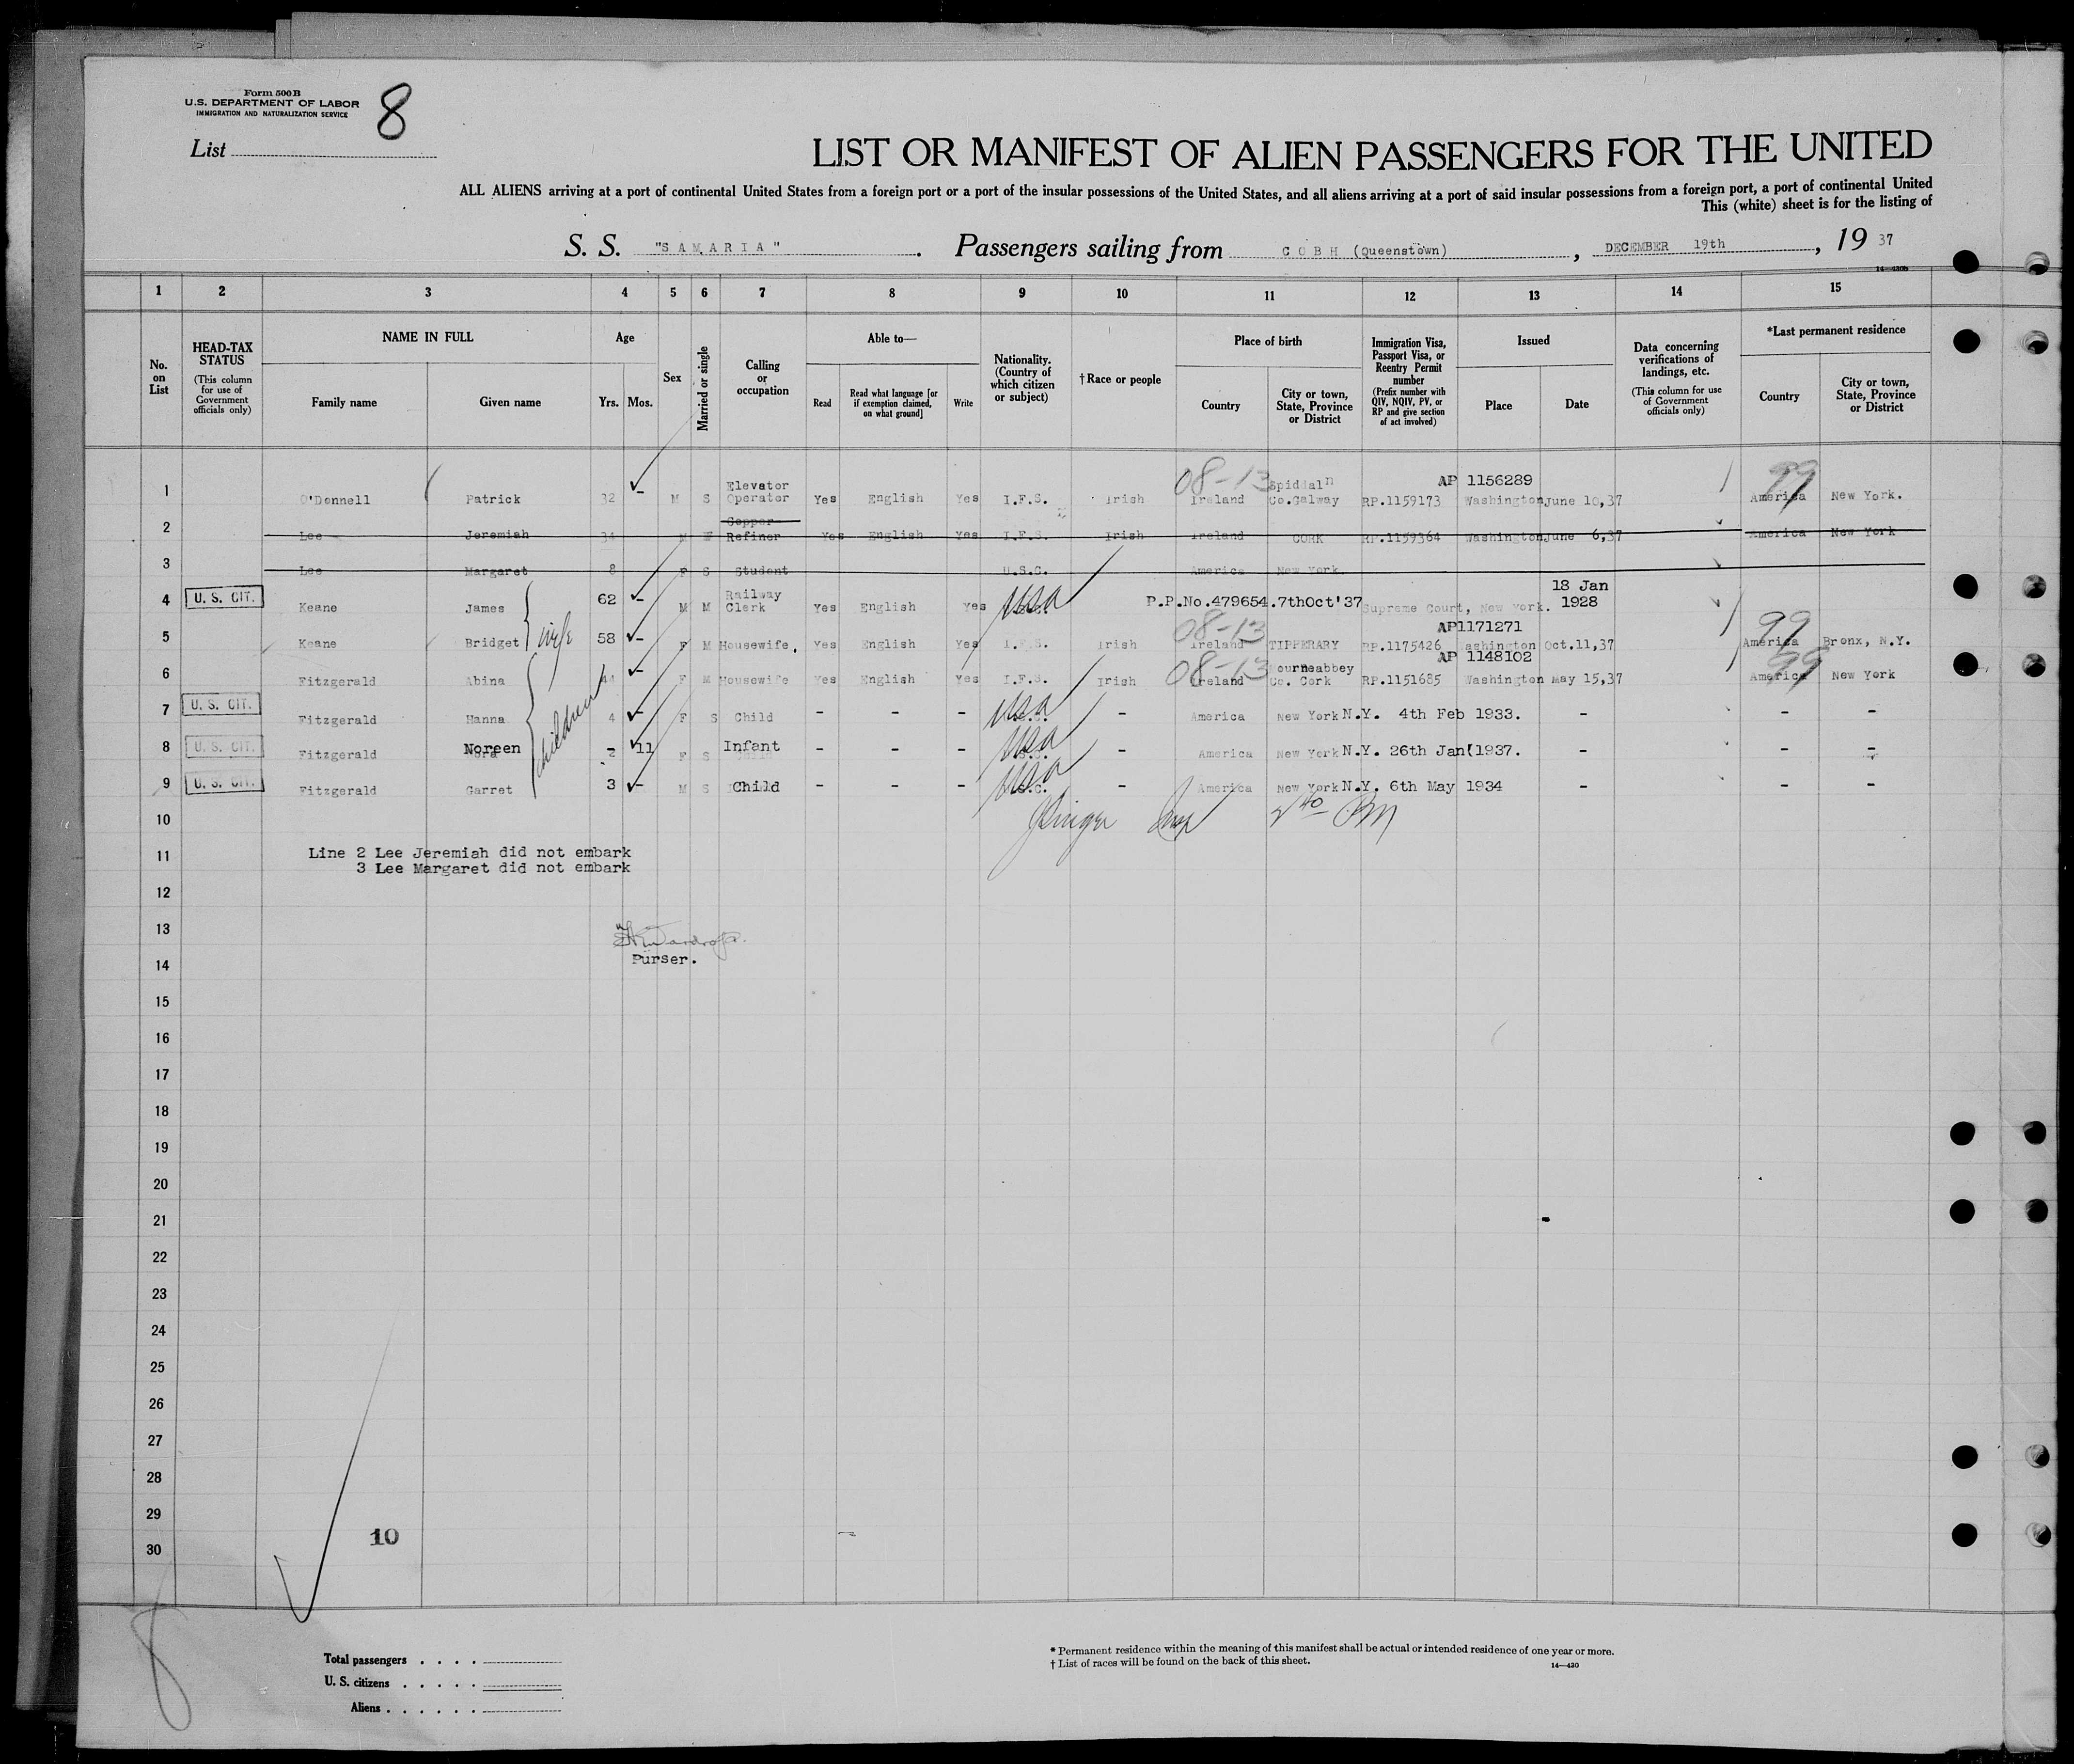 Form 500B
U.S. DEPARTMENT OF LABOR
IMMIGRATION AND NATURALIZATION SERVICE
8
List
LIST OR MANIFEST OF ALIEN PASSENGERS FOR THE UNITED
ALL ALIENS arriving at a port of continental United States from a foreign port or a port of the insular possessions of the United States, and all aliens arriving at a port of said insular possessions from a foreign port, a port of continental United
This (white) sheet is for the listing of
S. S. "SAMARIA". Passengers sailing from COBH (Queenstown), DECEMBER 19th, 1937
14—430b
1 2 3 4 5 6 7 8 9 10 11 12 13 14 15
No. on List
HEAD-TAX STATUS (This column for use of Government officials only)
NAME IN FULL Family name Given name
Age Yrs. Mos.
Sex
Married or single
Calling or occupation
Able to— Read Read what language [or if exemption claimed, on what ground] Write
Nationality. (Country of which citizen or subject)
†Race or people
Place of birth Country City or town, State, Province or District
Immigration Visa, Passport Visa, or Reentry Permit number (Prefix number with QIV, NQIV, PV, or RP and give section of act involved)
Issued Place Date
Data concerning verifications of landings, etc. (This column for use of Government officials only)
*Last permanent residence Country City or town, State, Province or District
08-13 AP 1156289 99
1 O'Donnell Patrick 32 - M S Elevator Operator Yes English Yes I.F.S. Irish Ireland Spiddal Co.Galway RP.1159173 Washington June 10,37 America New York.
2 Lee Jeremiah 34 M Copper Refiner Yes English Yes I.F.S. Irish Ireland CORK RP.1159364 Washington June 6,37 America New York
3 Lee Margaret 8 F S Student U.S.C. America New York
4 U. S. CIT. Keane James 62 - M M Railway Clerk Yes English Yes USA P.P.No.479654.7thOct'37 Supreme Court, New York. 18 Jan 1928
wife
08-13 AP1171271 99
5 Keane Bridget 58 - F M Housewife. Yes English Yes I.F.S. Irish Ireland TIPPERARY RP.1175426 Washington Oct.11,37 America Bronx, N.Y.
08-13 AP 1148102 99
6 Fitzgerald Abina 44 - F M Housewife Yes English Yes I.F.S. Irish Ireland Mourneabbey Co. Cork RP.1151685 Washington May 15,37 America New York
children
7 U. S. CIT. Fitzgerald Hanna 4 - F S Child - - - USA - America New York N.Y. 4th Feb 1933. - - -
8 U. S. CIT. Fitzgerald Noreen - 11 F S Infant - - - USA - America New York N.Y. 26th Jan 1937. - - -
9 U. S. CIT. Fitzgerald Garret 3 - M S Child - - - USA - America New York N.Y. 6th May 1934 - - -
10
11 Line 2 Lee Jeremiah did not embark
3 Lee Margaret did not embark
12
13
Purser.
14
15
16
17
18
19
20
21
22
23
24
25
26
27
28
29
10
30
8
Total passengers . . . .
U. S. citizens . . . . .
Aliens . . . . . .
* Permanent residence within the meaning of this manifest shall be actual or intended residence of one year or more.
† List of races will be found on the back of this sheet.
14—430